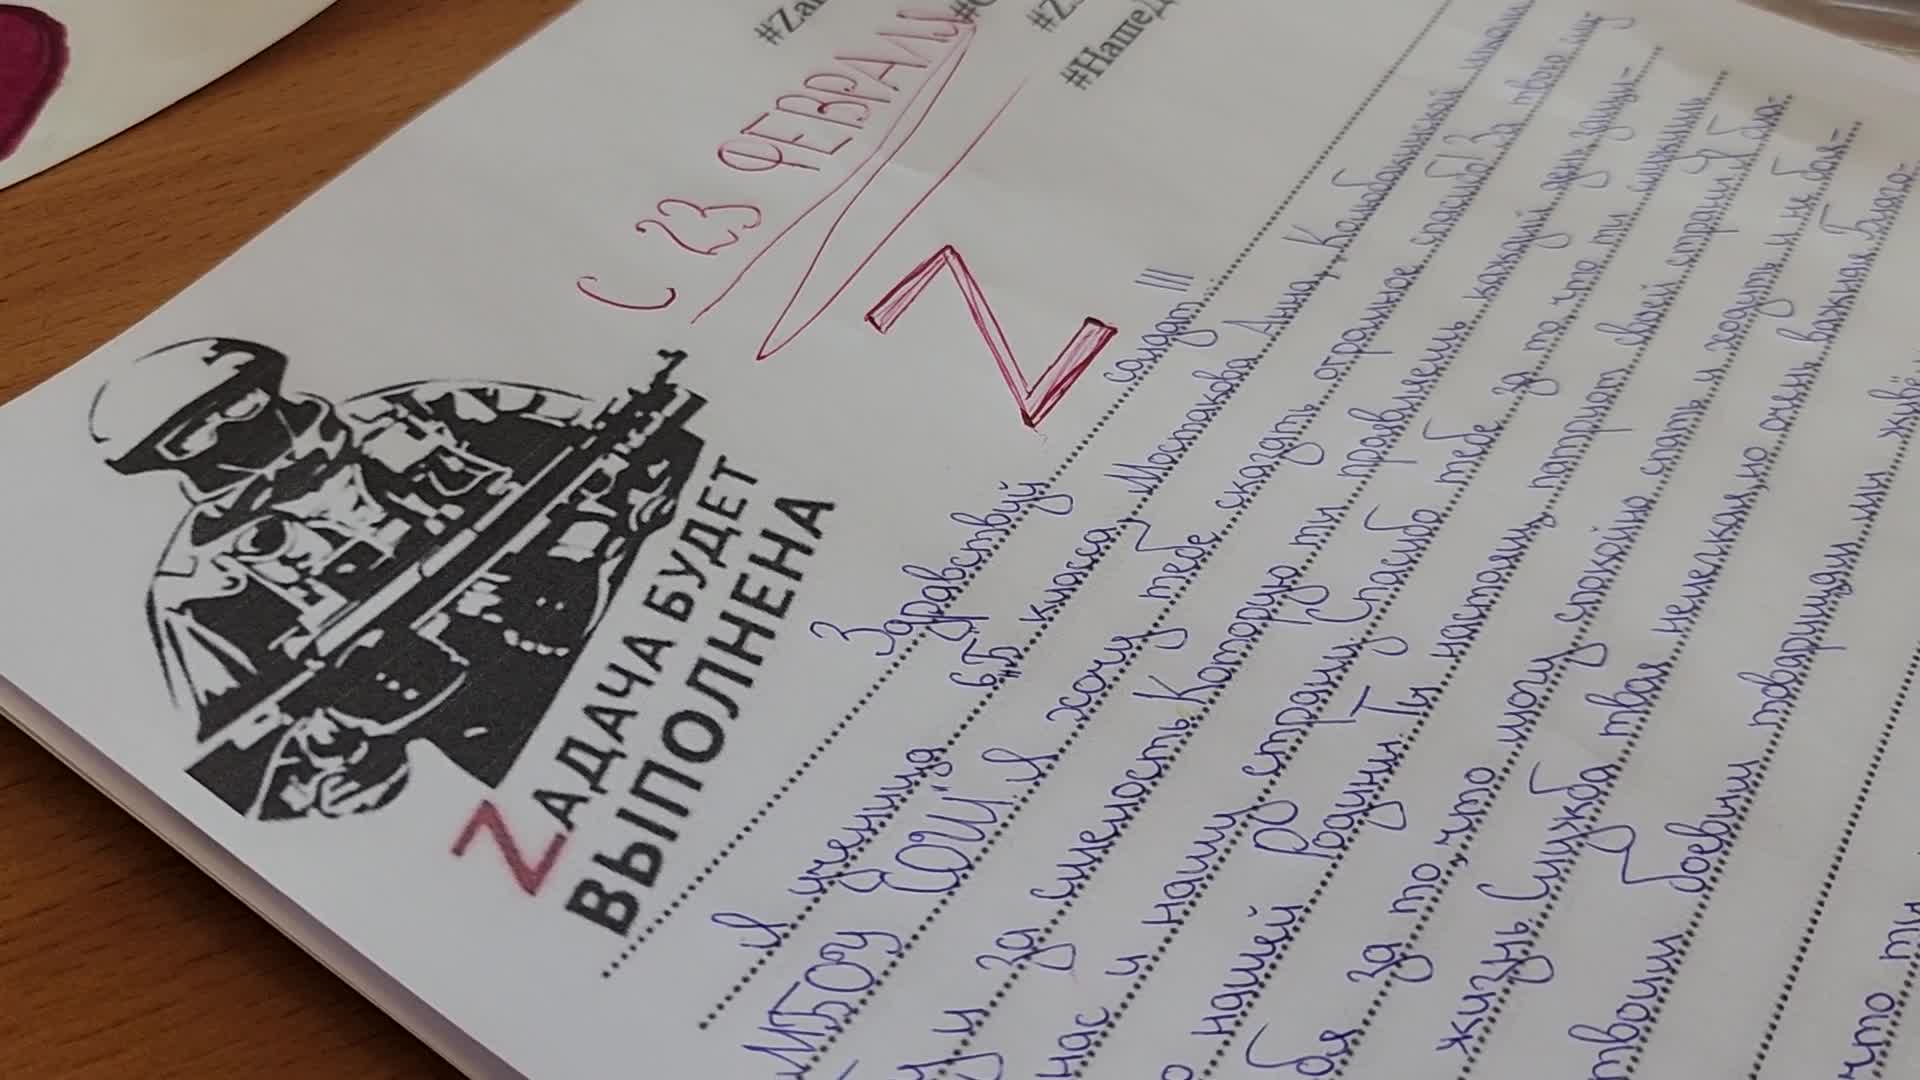 #Za
#Z
#НашеД
С 23 ФЕВРАЛЯ
Z
ZАДАЧА БУДЕТ
ВЫПОЛНЕНА
Здравствуй солдат!!!
Я ученица 6"Б" класса, Мостакова Анна,
МБОУ СОШ. Я хочу тебе сказать огромное спасибо! За твою
и за смелость. Которую ты проявляешь каждый день защи-
нас и нашу страну. Спасибо тебе за то что ты служишь
нашей Родины. Ты настоящ патриот своей страны. Я бла-
бя за то, что могу спокойно спать и ходить и не боя-
жизнь. Служба твоя нелегкая, но очень важная. Благо-
твоим боевым товарищам мы живё
что ты